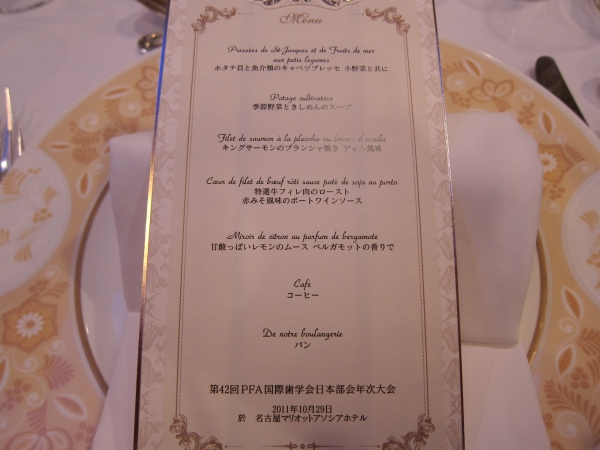 Menu
Pressées de St-Jacques et de Fruits de mer
aux petis légumes
ホタテ貝と魚介類のキャベツプレッセ 小野菜と共に
Potage cultivateur
季節野菜ときしめんのスープ
Filet de saumon à la plancha au
キングサーモンのプランシャ焼き ヴィル風味
Cœur de filet de bœuf rôti sauce pate de soja au porto
特選牛フィレ肉のロースト
赤みそ風味のポートワインソース
Miroir de citron au parfum de bergamote
甘酸っぱいレモンのムース ベルガモットの香りで
Café
コーヒー
De notre boulangerie
パン
第42回PFA国際歯学会日本部会年次大会
2011年10月29日
於 名古屋マリオットアソシアホテル